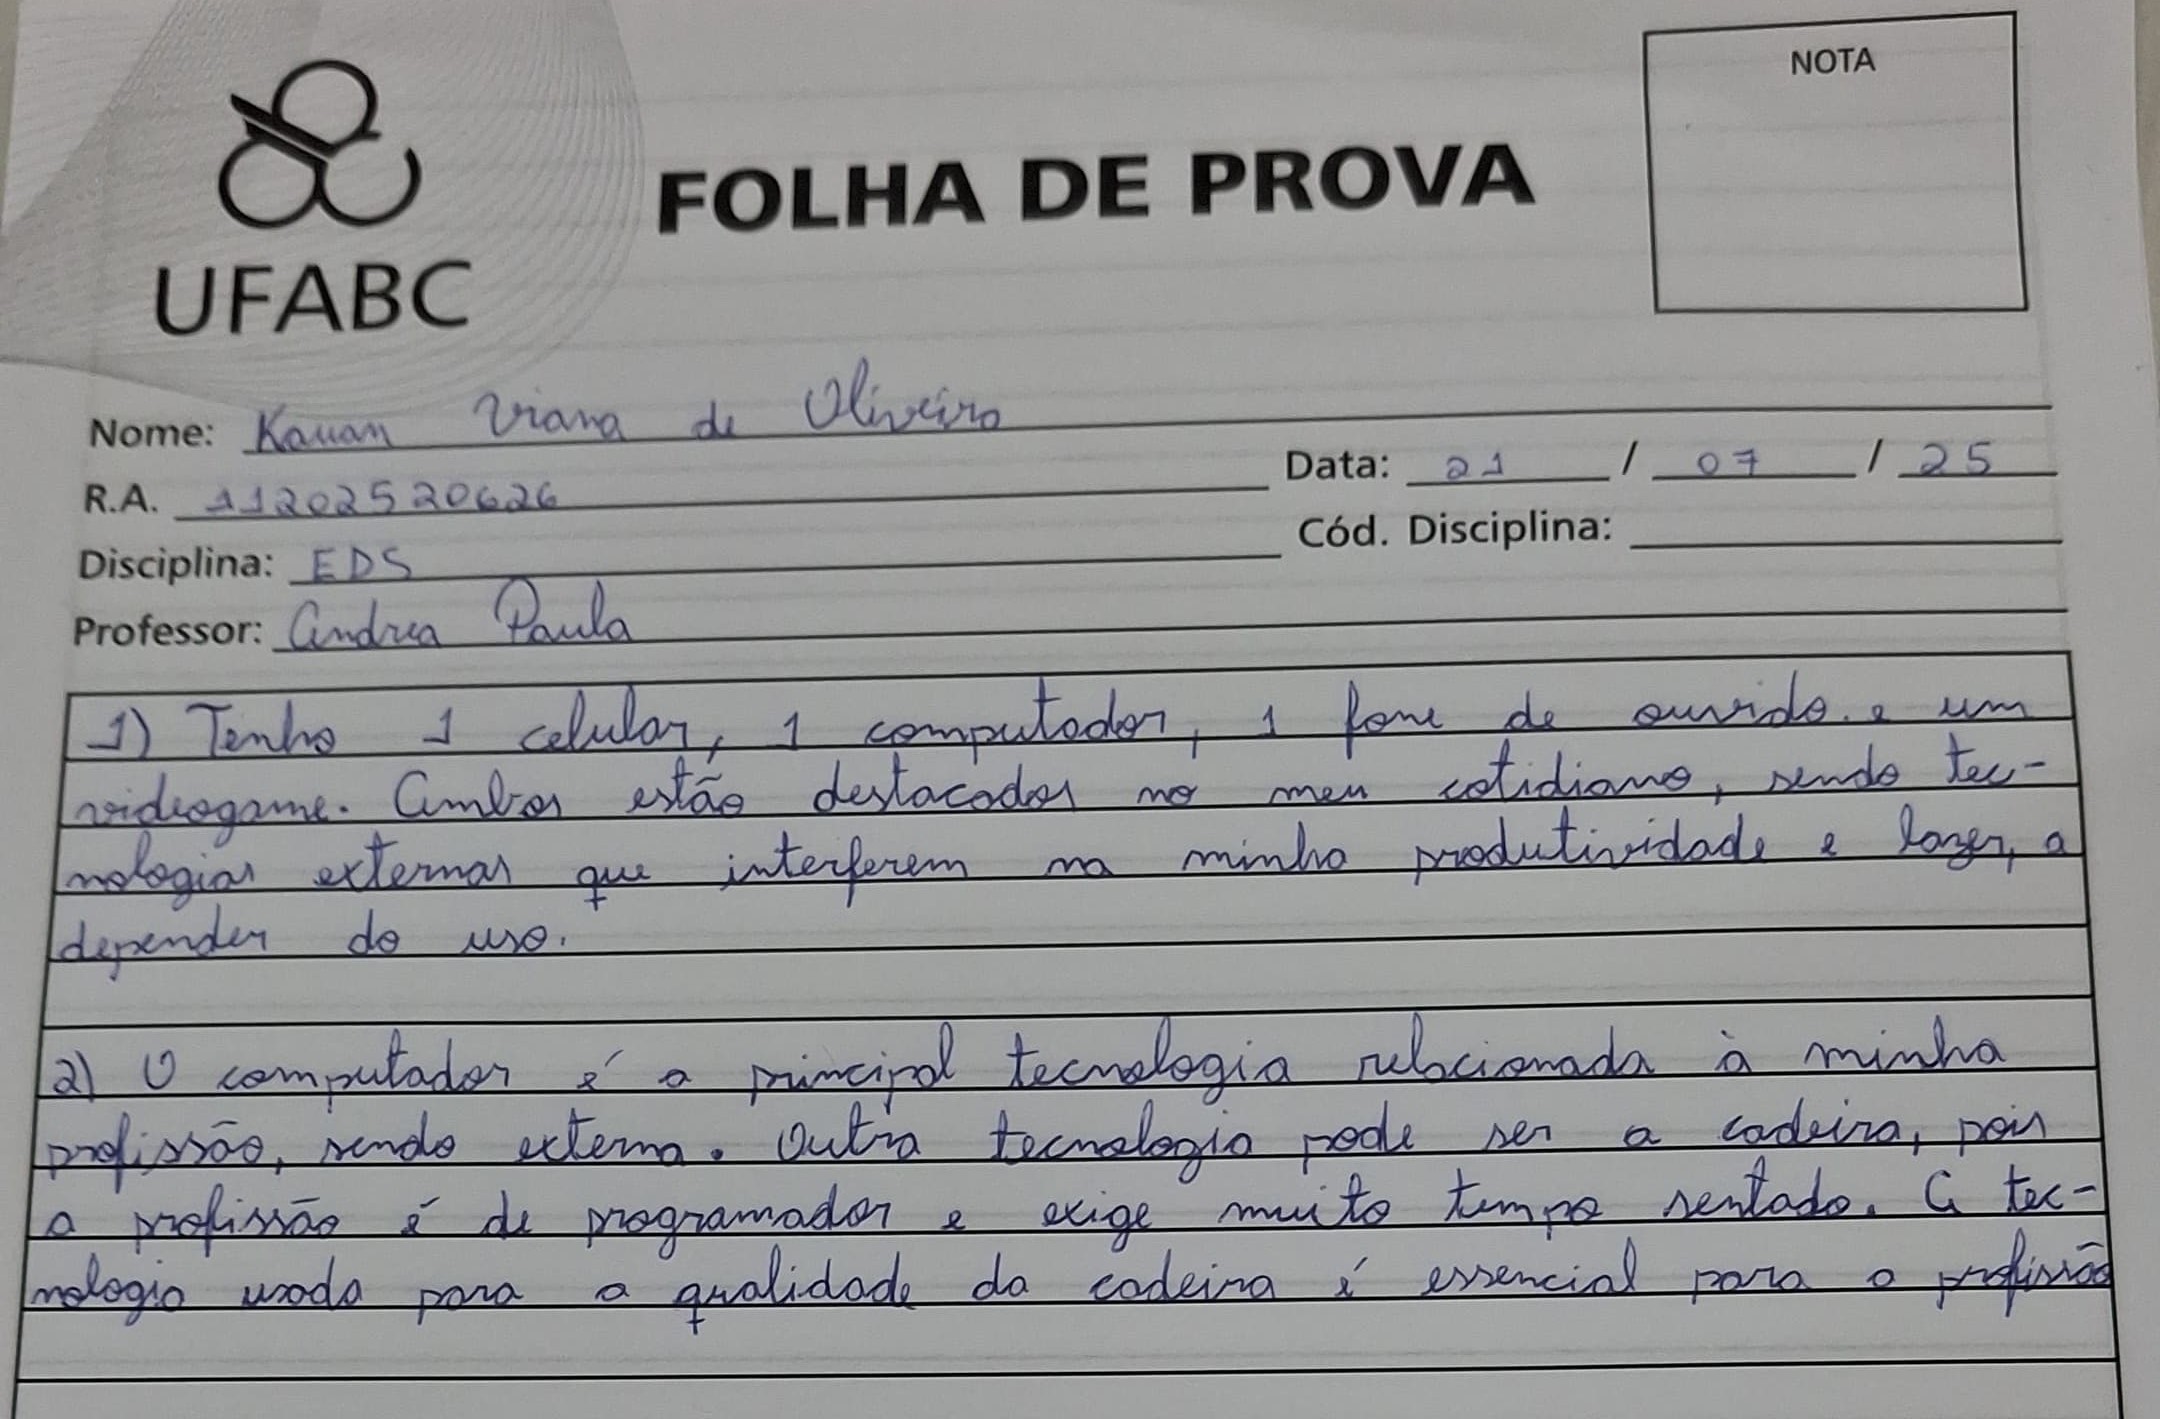 NOTA
FOLHA DE PROVA
UFABC
Nome: Kauan Viana de Oliveira
R.A. 11202520626
Data: 21 / 07 / 25
Disciplina: EDS
Cód. Disciplina:
Professor: Andrea Paula
1) Tenho 1 celular, 1 computador, 1 fone de ouvido e um
videogame. Ambos estão destacados no meu cotidiano, sendo tec-
nologias externas que interferem na minha produtividade e lazer, a
depender do uso.
2) O computador é a principal tecnologia relacionada à minha
profissão, sendo externa. Outra tecnologia pode ser a cadeira, pois
a profissão é de programador e exige muito tempo sentado. A tec-
nologia usada para a qualidade da cadeira é essencial para a profissão